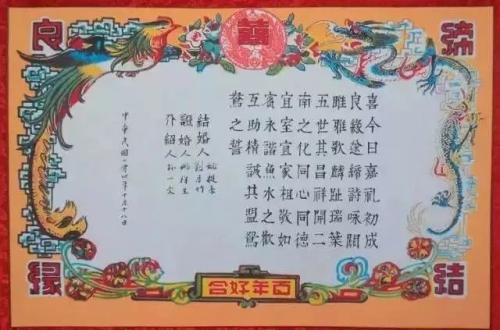 囍
締
結
良
緣
喜今日嘉禮初成
良緣遂締詩咏關
雎雅歌麟趾瑞葉
五世其昌祥開二
南之化同心同德
宜室宜家相敬如
賓永諧魚水之歡
互助精誠共盟鴛
鴦之誓
結婚人
證婚人
介紹人
中華民國
百年好合